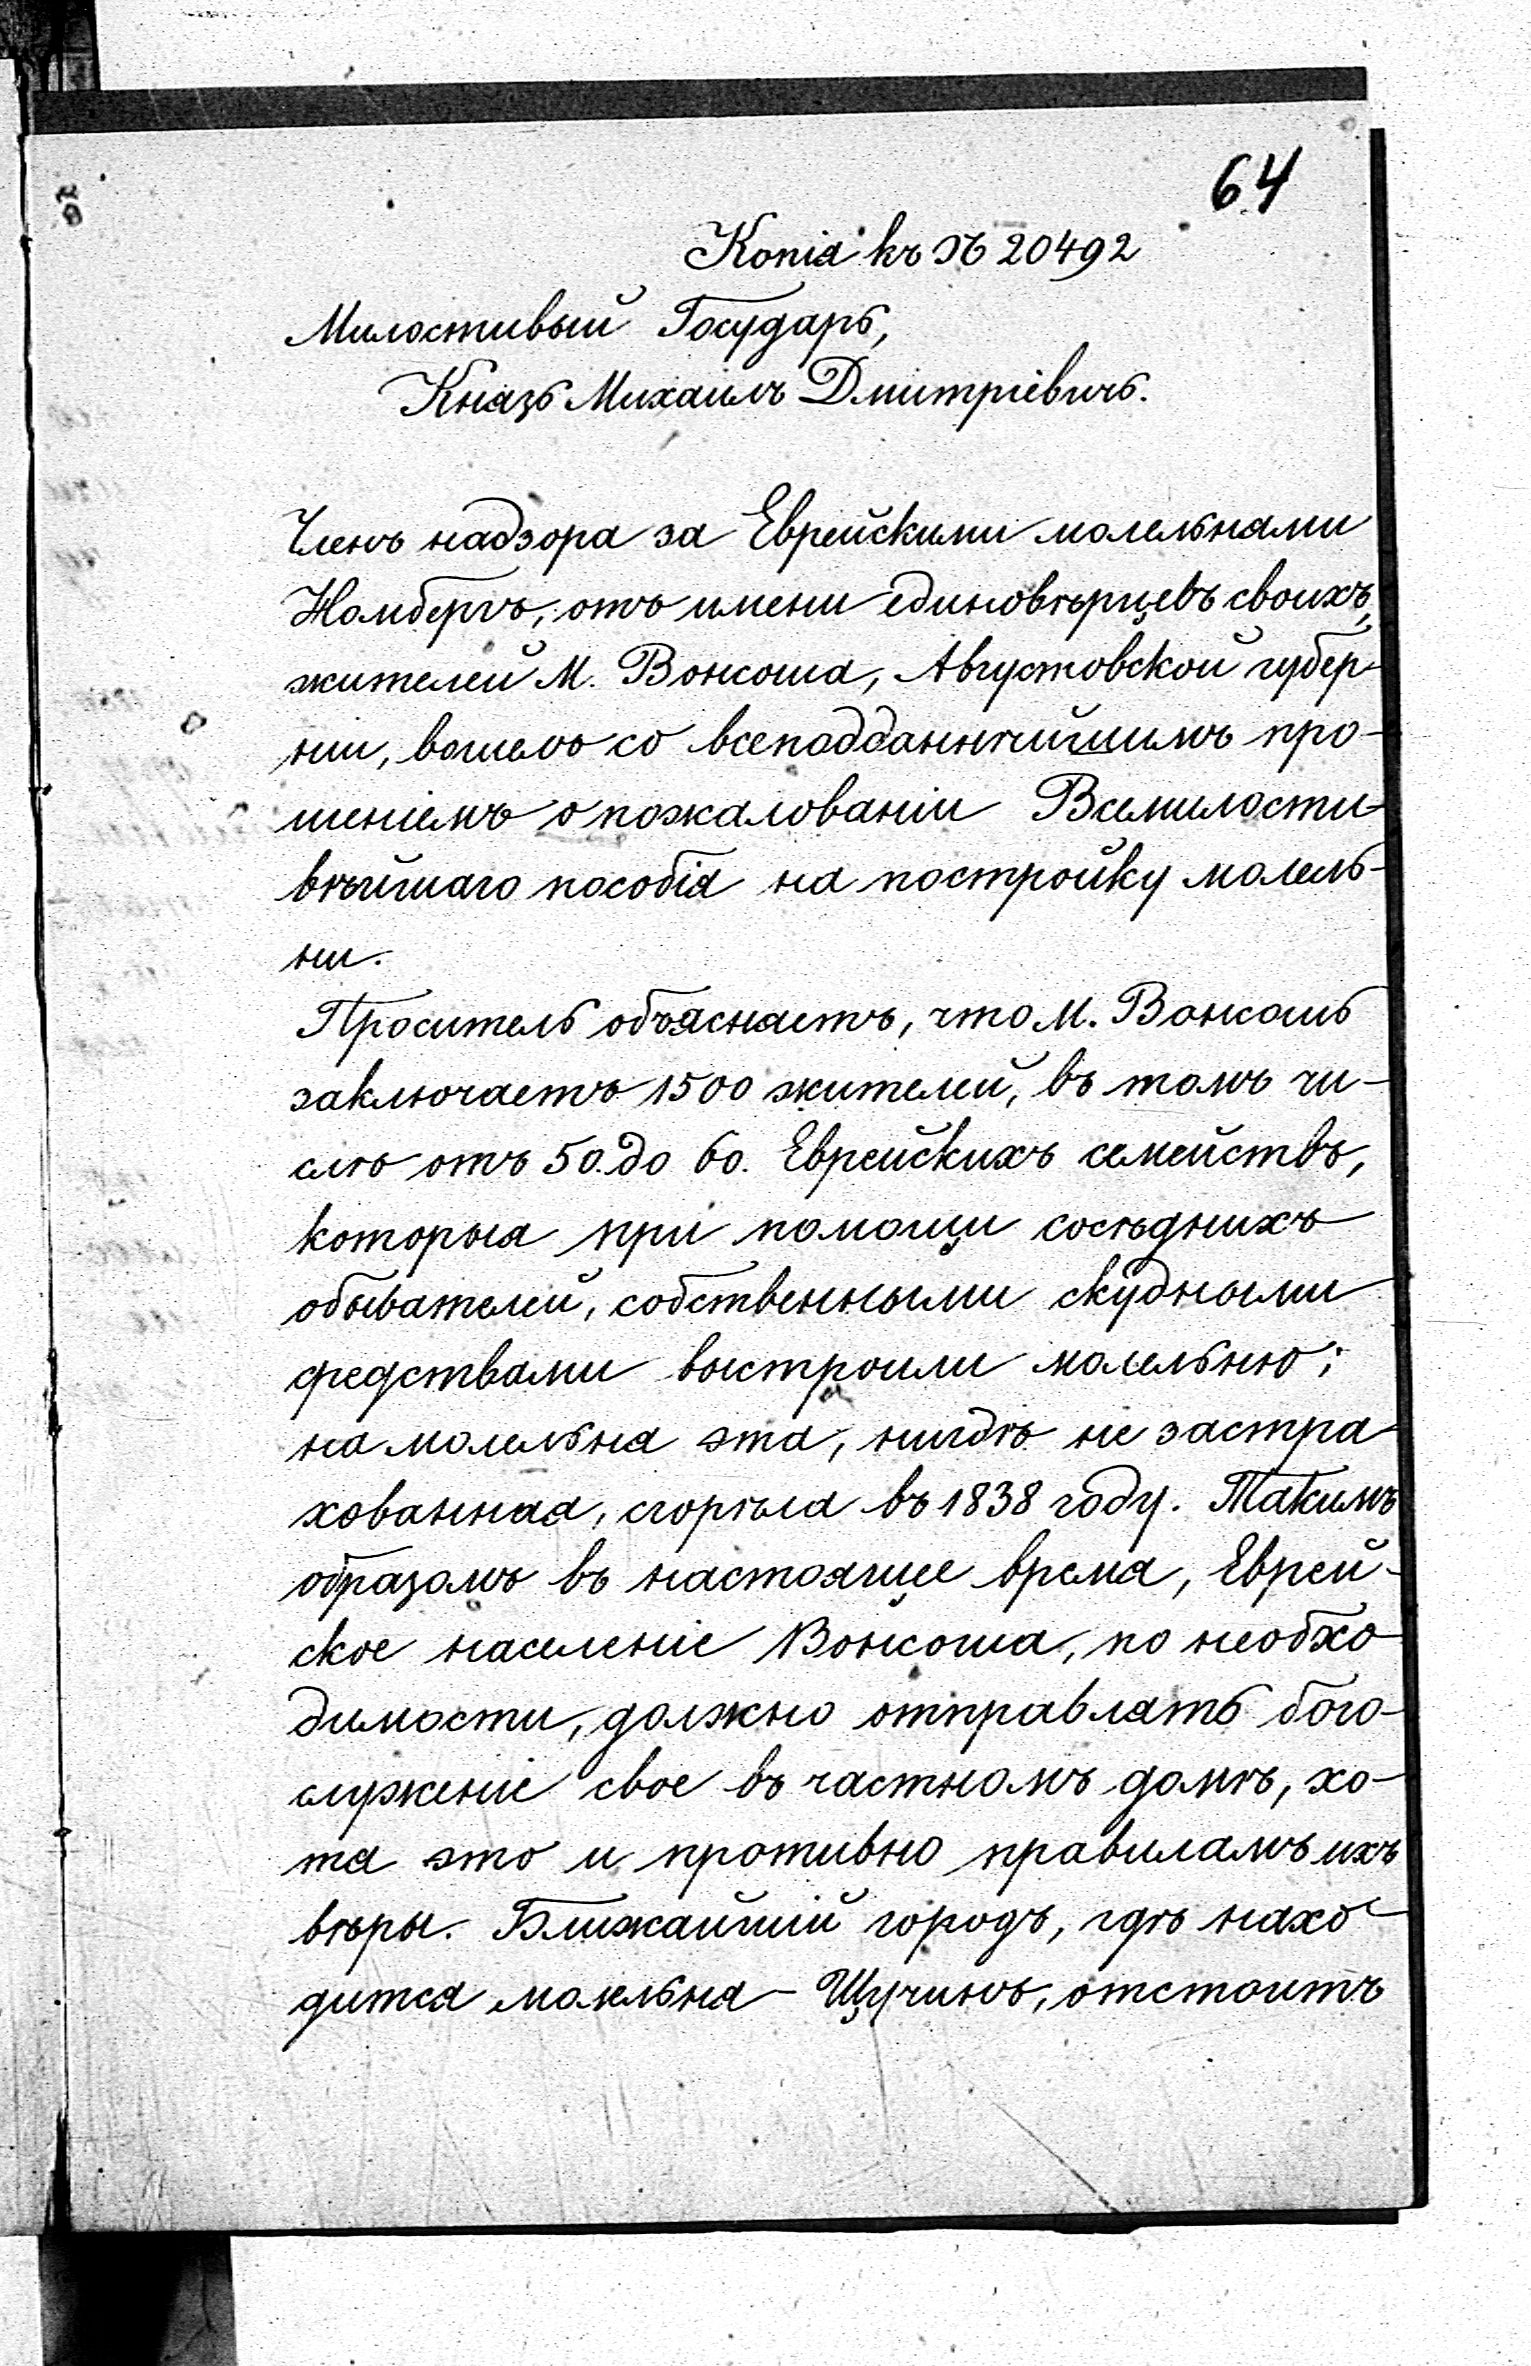 64
Копія къ № 20492
Милостивый Государь,
Князь Михаилъ Дмитріевичь.
Членъ надзора за Еврейскими молельнями
Номбергъ, отъ имени единовѣрцевъ своихъ,
жителей М. Вонсоша, Августовской губер-
ніи, вошелъ со всеподданнѣйшимъ про-
шеніемъ о пожалованіи Всемилости-
вѣйшаго пособія на постройку молель-
ни.
Проситель объясняетъ, что М. Вонсошь
заключаетъ 1500 жителей, въ томъ чи-
слѣ отъ 50. до 60. Еврейскихъ семействъ,
которыя при помощи сосѣднихъ
обывателей, собственными скудными
средствами выстроили молельню;
но молельня эта, нигдѣ не застра-
хованная, сгорѣла въ 1838 году. Такимъ
образомъ въ настоящее время, Еврей-
ское населеніе Вонсоша, по необхо-
димости, должно отправлять бого-
служеніе свое въ частномъ домѣ, хо-
тя это и противно правиламъ ихъ
вѣры. Ближайшій городъ, гдѣ нахо-
дится молельня - Щучинъ, отстоитъ